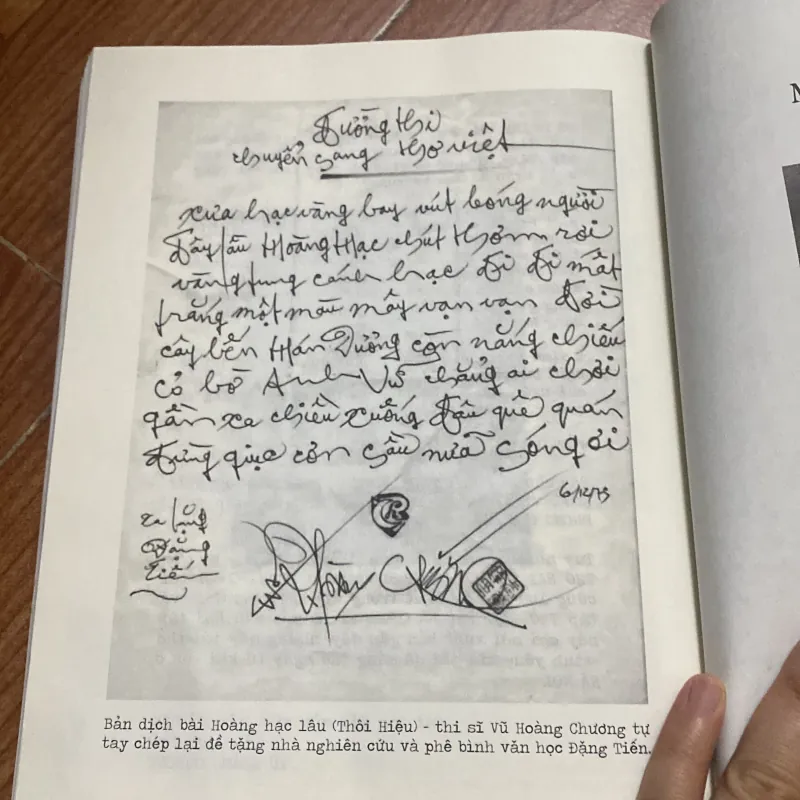 Đường thi
chuyển sang thơ việt
xưa hạc vàng bay vút bóng người
Đây lầu Hoàng Hạc chút thơm rơi
vàng tung cánh hạc đi đi mất
trắng một màu mây vạn vạn đời
cây bến Hán Dương còn nắng chiếu
cỏ bờ Anh Vũ chẳng ai chơi
gần xa chiều xuống đâu quê quán
đừng giục cơn sầu nữa sóng ơi
6/12/73
Đặng
Tiến
R
Hoàng Chương
Bản dịch bài Hoàng hạc lâu (Thôi Hiệu) - thi sĩ Vũ Hoàng Chương tự
tay chép lại để tặng nhà nghiên cứu và phê bình văn học Đặng Tiến.
M